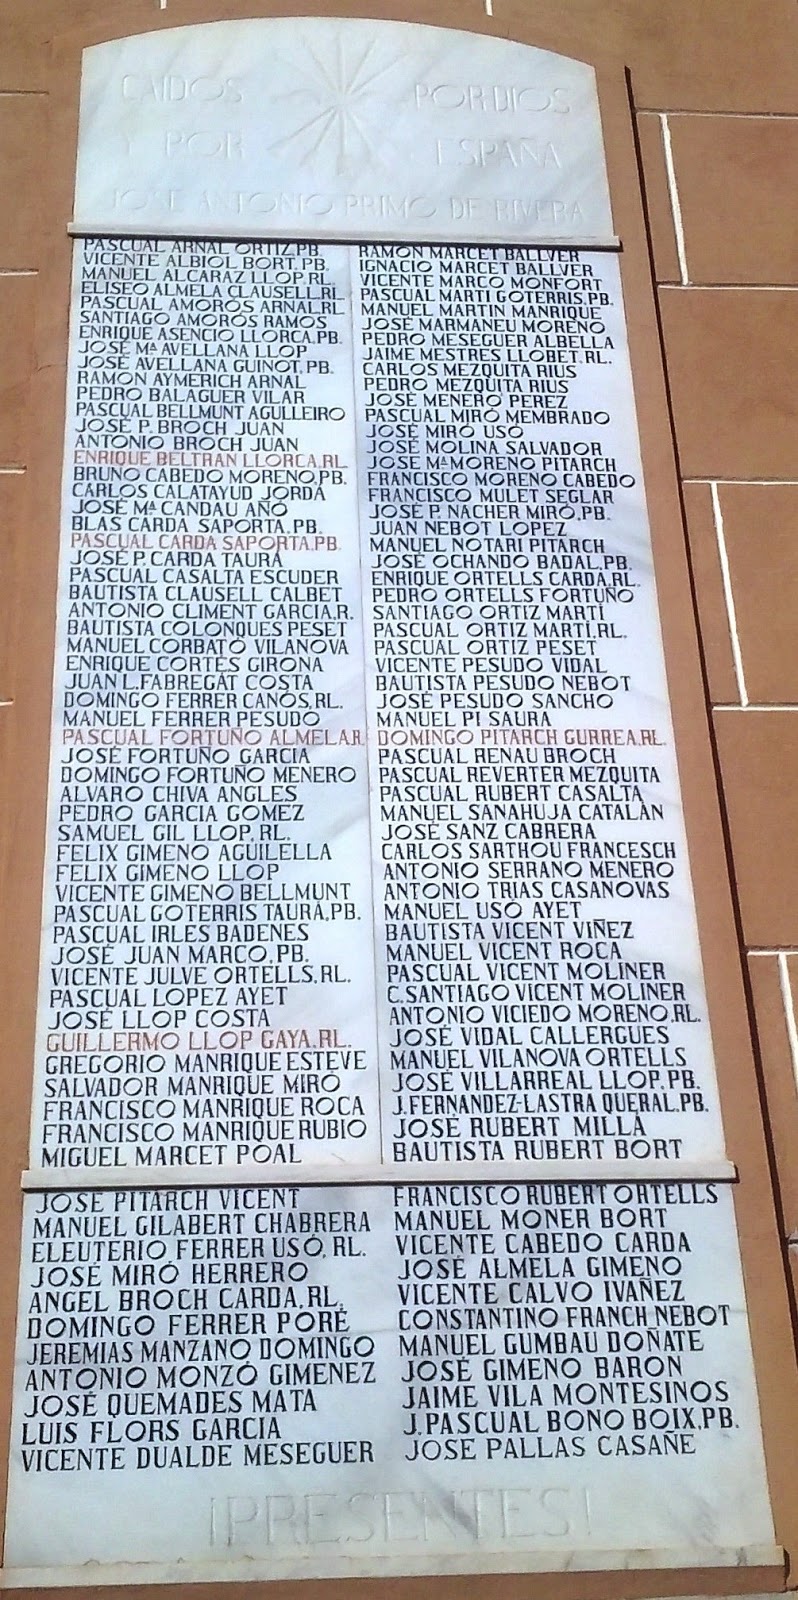 CAIDOS POR DIOS
Y POR ESPAÑA
JOSE ANTONIO PRIMO DE RIVERA
PASCUAL ARNAL ORTIZ.PB.
VICENTE ALBIOL BORT.PB.
MANUEL ALCARAZ LLOP.RL.
ELISEO ALMELA CLAUSELL.RL.
PASCUAL AMORÓS ARNAL.RL.
SANTIAGO AMORÓS RAMOS
ENRIQUE ASENCIO LLORCA.PB.
JOSÉ Mª AVELLANA LLOP
JOSÉ AVELLANA GUINOT.PB.
RAMON AYMERICH ARNAL
PEDRO BALAGUER VILAR
PASCUAL BELLMUNT AGULLEIRO
JOSÉ P. BROCH JUAN
ANTONIO BROCH JUAN
ENRIQUE BELTRAN LLORCA.RL.
BRUNO CABEDO MORENO.PB.
CARLOS CALATAYUD JORDÁ
JOSÉ Mª CANDAU AÑO
BLAS CARDA SAPORTA.PB.
PASCUAL CARDA SAPORTA.PB.
JOSÉ P. CARDA TAURÁ
PASCUAL CASALTA ESCUDER
BAUTISTA CLAUSELL CALBET
ANTONIO CLIMENT GARCIA.R.
BAUTISTA COLONQUES PESET
MANUEL CORBATÓ VILANOVA
ENRIQUE CORTÉS GIRONA
JUAN L.FABREGAT COSTA
DOMINGO FERRER CANÓS.RL.
MANUEL FERRER PESUDO
PASCUAL FORTUÑO ALMELA.R.
JOSÉ FORTUÑO GARCIA
DOMINGO FORTUÑO MENERO
ALVARO CHIVA ANGLES
PEDRO GARCIA GOMEZ
SAMUEL GIL LLOP.RL.
FELIX GIMENO AGUILELLA
FELIX GIMENO LLOP
VICENTE GIMENO BELLMUNT
PASCUAL GOTERRIS TAURÁ.PB.
PASCUAL IRLES BADENES
JOSÉ JUAN MARCO.PB.
VICENTE JULVE ORTELLS.RL.
PASCUAL LOPEZ AYET
JOSÉ LLOP COSTA
GUILLERMO LLOP GAYA.RL.
GREGORIO MANRIQUE ESTEVE
SALVADOR MANRIQUE MIRÓ
FRANCISCO MANRIQUE ROCA
FRANCISCO MANRIQUE RUBIO
MIGUEL MARCET POAL
RAMON MARCET BALLVER
IGNACIO MARCET BALLVER
VICENTE MARCO MONFORT
PASCUAL MARTI GOTERRIS.PB.
MANUEL MARTIN MANRIQUE
JOSÉ MARMANEU MORENO
PEDRO MESEGUER ALBELLA
JAIME MESTRES LLOBET.RL.
CARLOS MEZQUITA RIUS
PEDRO MEZQUITA RIUS
JOSÉ MENERO PEREZ
PASCUAL MIRÓ MEMBRADO
JOSÉ MIRÓ USÓ
JOSÉ MOLINA SALVADOR
JOSE Mª MORENO PITARCH
FRANCISCO MORENO CABEDO
FRANCISCO MULET SEGLAR
JOSÉ P. NACHER MIRÓ.PB.
JUAN NEBOT LOPEZ
MANUEL NOTARI PITARCH
JOSÉ OCHANDO BADAL.PB.
ENRIQUE ORTELLS CARDA.RL.
PEDRO ORTELLS FORTUÑO
SANTIAGO ORTIZ MARTÍ
PASCUAL ORTIZ MARTÍ.RL.
PASCUAL ORTIZ PESET
VICENTE PESUDO VIDAL
BAUTISTA PESUDO NEBOT
JOSÉ PESUDO SANCHO
MANUEL PI SAURA
DOMINGO PITARCH GURREA.RL.
PASCUAL RENAU BROCH
PASCUAL REVERTER MEZQUITA
PASCUAL RUBERT CASALTA
MANUEL SANAHUJA CATALÁN
JOSÉ SANZ CABRERA
CARLOS SARTHOU FRANCESCH
ANTONIO SERRANO MENERO
ANTONIO TRIAS CASANOVAS
MANUEL USÓ AYET
BAUTISTA VICENT VIÑEZ
MANUEL VICENT ROCA
PASCUAL VICENT MOLINER
C.SANTIAGO VICENT MOLINER
ANTONIO VICIEDO MORENO.RL.
JOSÉ VIDAL CALLERGUES
MANUEL VILANOVA ORTELLS
JOSÉ VILLARREAL LLOP.PB.
J.FERNANDEZ-LASTRA QUERAL.PB.
JOSÉ RUBERT MILLÁ
BAUTISTA RUBERT BORT
JOSE PITARCH VICENT
MANUEL GILABERT CHABRERA
ELEUTERIO FERRER USÓ, RL.
JOSÉ MIRÓ HERRERO
ANGEL BROCH CARDA.RL.
DOMINGO FERRER PORÉ
JEREMIAS MANZANO DOMINGO
ANTONIO MONZÓ GIMENEZ
JOSÉ QUEMADES MATA
LUIS FLORS GARCIA
VICENTE DUALDE MESEGUER
FRANCISCO RUBERT ORTELLS
MANUEL MONER BORT
VICENTE CABEDO CARDA
JOSÉ ALMELA GIMENO
VICENTE CALVO IVAÑEZ
CONSTANTINO FRANCH NEBOT
MANUEL GUMBAU DOÑATE
JOSÉ GIMENO BARON
JAIME VILA MONTESINOS
J.PASCUAL BONO BOIX.PB.
JOSE PALLAS CASAÑE
¡PRESENTES!